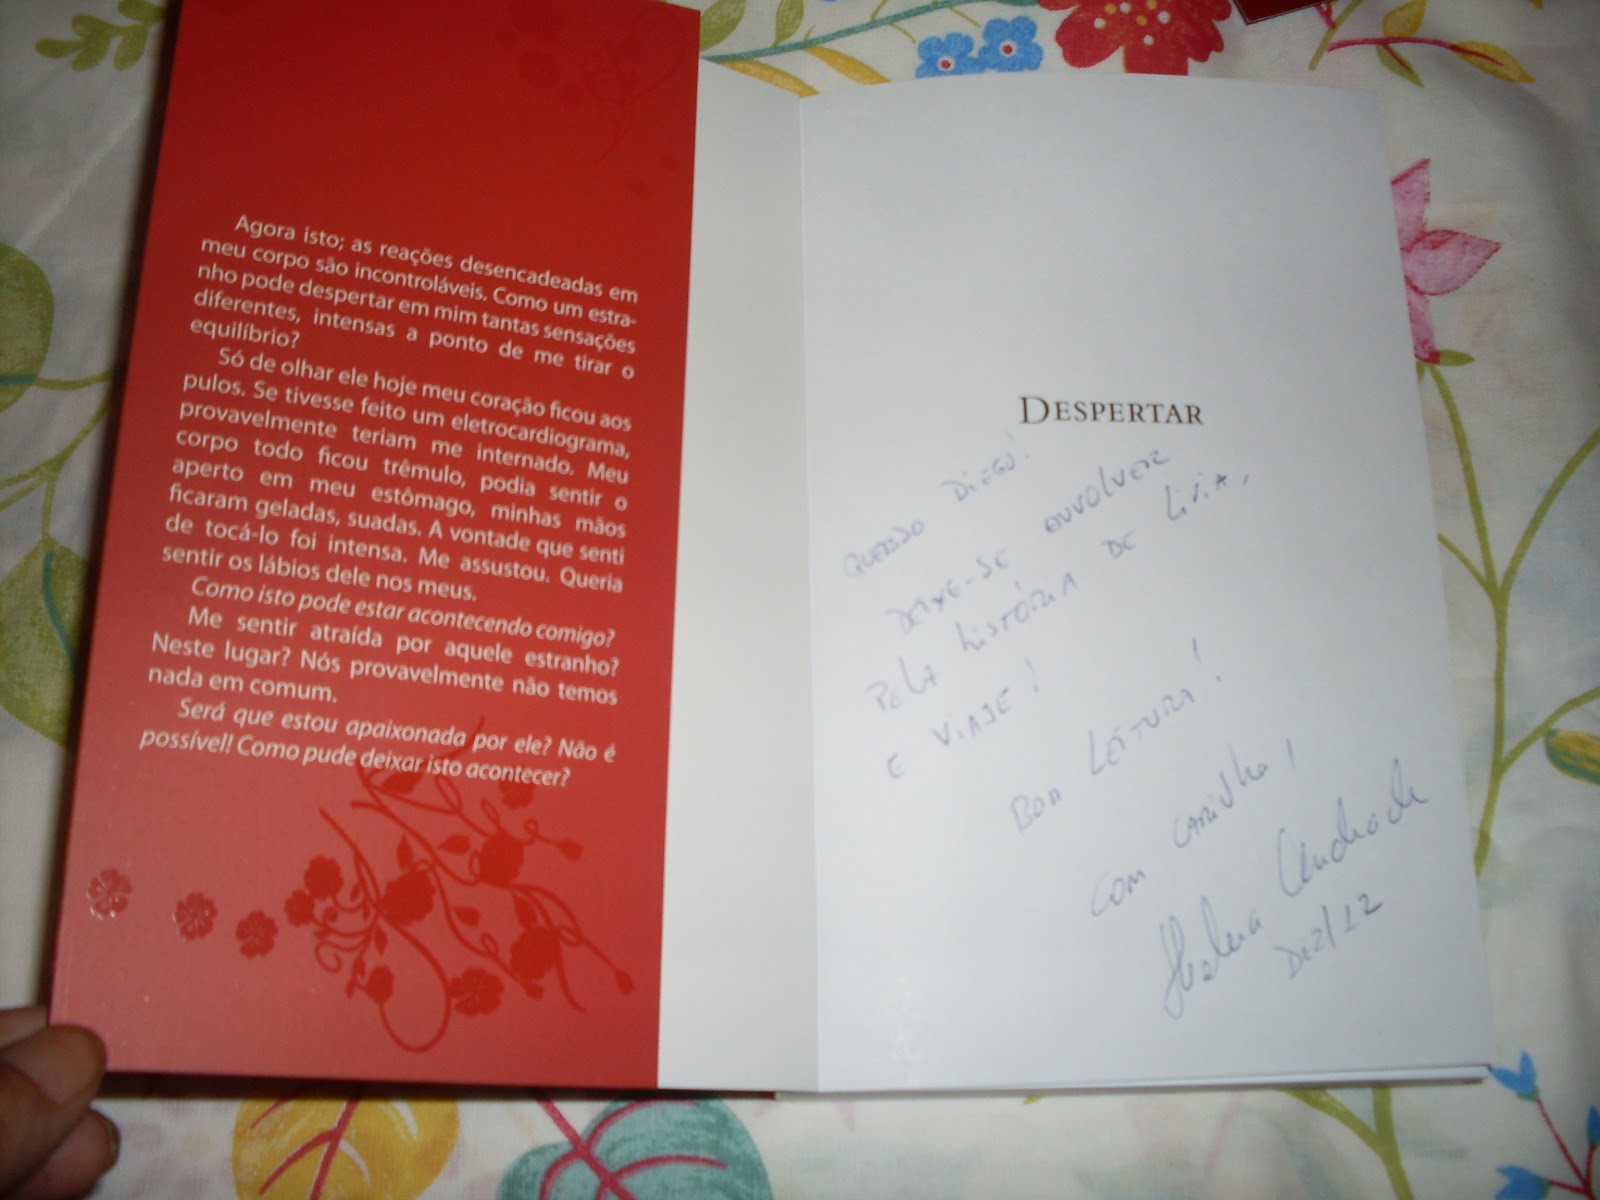 Agora isto; as reações desencadeadas em
meu corpo são incontroláveis. Como um estra-
nho pode despertar em mim tantas sensações
diferentes, intensas a ponto de me tirar o
equilíbrio?
Só de olhar ele hoje meu coração ficou aos
pulos. Se tivesse feito um eletrocardiograma,
provavelmente teriam me internado. Meu
corpo todo ficou trêmulo, podia sentir o
aperto em meu estômago, minhas mãos
ficaram geladas, suadas. A vontade que senti
de tocá-lo foi intensa. Me assustou. Queria
sentir os lábios dele nos meus.
Como isto pode estar acontecendo comigo?
Me sentir atraída por aquele estranho?
Neste lugar? Nós provavelmente não temos
nada em comum.
Será que estou apaixonada por ele? Não é
possível! Como pude deixar isto acontecer?
DESPERTAR
QUERIDO DIEGO!
DEIXE-SE ENVOLVER
PELA HISTÓRIA DE LIVIA,
E VIAJE!
BOA LEITURA!
COM CARINHO,
Helena Andrade
DEZ/12